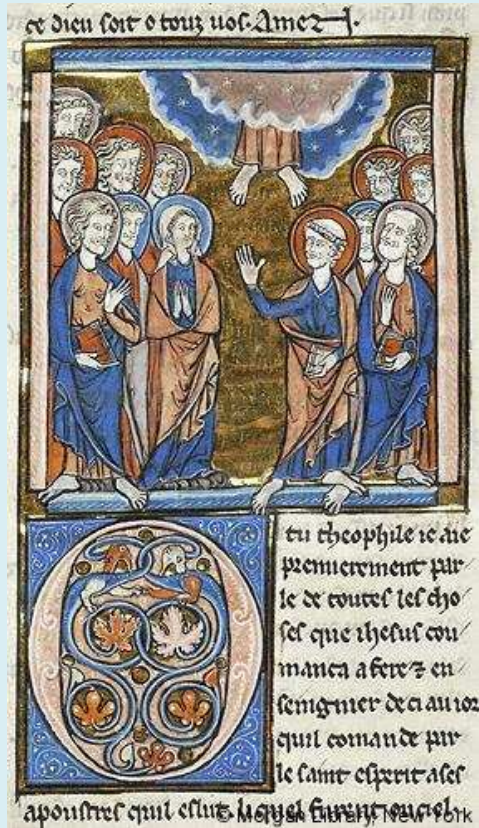 ce dieu soit o touz uos. Amen
O
tu theophile ie aie
premierement par
le de toutes les cho
ses que ihesus cou
manca a fere ⁊ en
seignier de ci au ior
quil comande par
le saint esperit a ses
apoustres quil eslut. li quel furent
© Morgan Library, New York